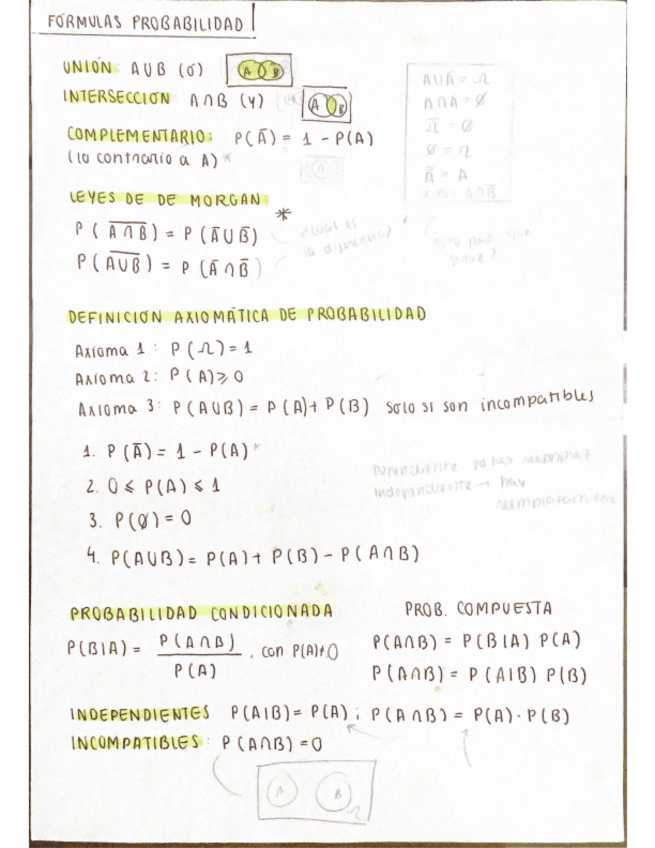 FÓRMULAS PROBABILIDAD
UNIÓN A∪B (ó)
A B
INTERSECCIÓN A∩B (Y)
A B
COMPLEMENTARIO: P(Ā) = 1 - P(A)
(lo contrario a A)*
A
A∪Ā = Ω
A∩Ā = ∅
Ω̅ = ∅
∅̅ = Ω
A̿ = A
LEYES DE DE MORGAN *
P(A̅∩̅B̅) = P(Ā∪B̄)
P(A̅∪̅B̅) = P(Ā∩B̄)
¿Cuál es
la diferencia?
esto para que
sirve?
DEFINICIÓN AXIOMÁTICA DE PROBABILIDAD
Axioma 1: P(Ω) = 1
Axioma 2: P(A) ⩾ 0
Axioma 3: P(A∪B) = P(A) + P(B) Solo si son incompatibles
1. P(Ā) = 1 - P(A)*
2. 0 ⩽ P(A) ⩽ 1
3. P(∅) = 0
4. P(A∪B) = P(A) + P(B) - P(A∩B)
Dependiente no hay
Independiente → hay
PROBABILIDAD CONDICIONADA
P(B|A) = P(A∩B) / P(A) , con P(A)≠0
PROB. COMPUESTA
P(A∩B) = P(B|A) P(A)
P(A∩B) = P(A|B) P(B)
INDEPENDIENTES P(A|B) = P(A) ; P(A∩B) = P(A)·P(B)
INCOMPATIBLES: P(A∩B) = 0
A B
Ω